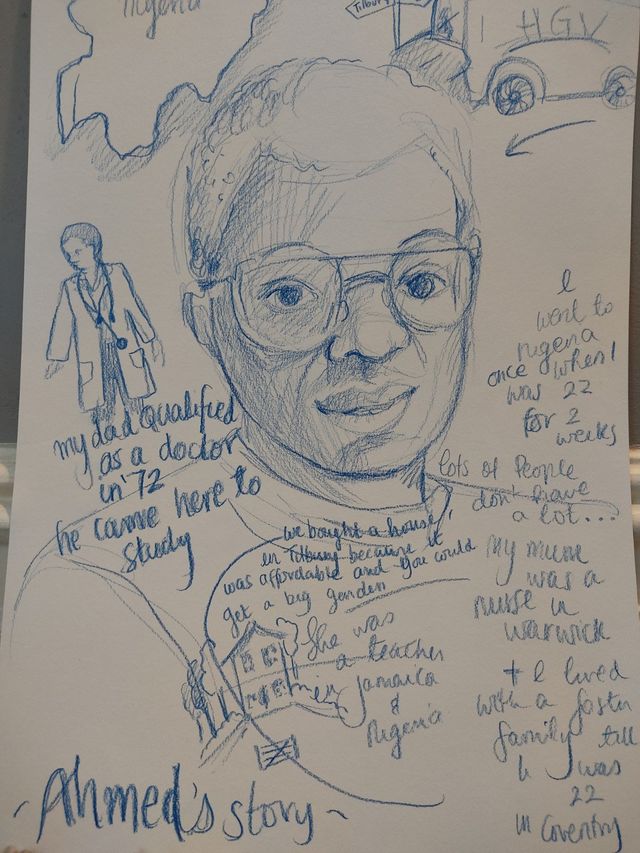 Nigeria
Tilbury
HGV
my dad qualified
as a doctor
in '72
he came here to
study
I
went to
nigeria
once when I
was 22
for 2
weeks
lots of People
don't have
a lot...
we bought a house,
in Tilbury because it
was affordable and you could
get a big garden
She was
a teacher
in Jamaica
&
Nigeria
My mum
was a
nurse in
warwick
+ I lived
with a foster
family till
I was
22
in Coventry
- Ahmed's story ~